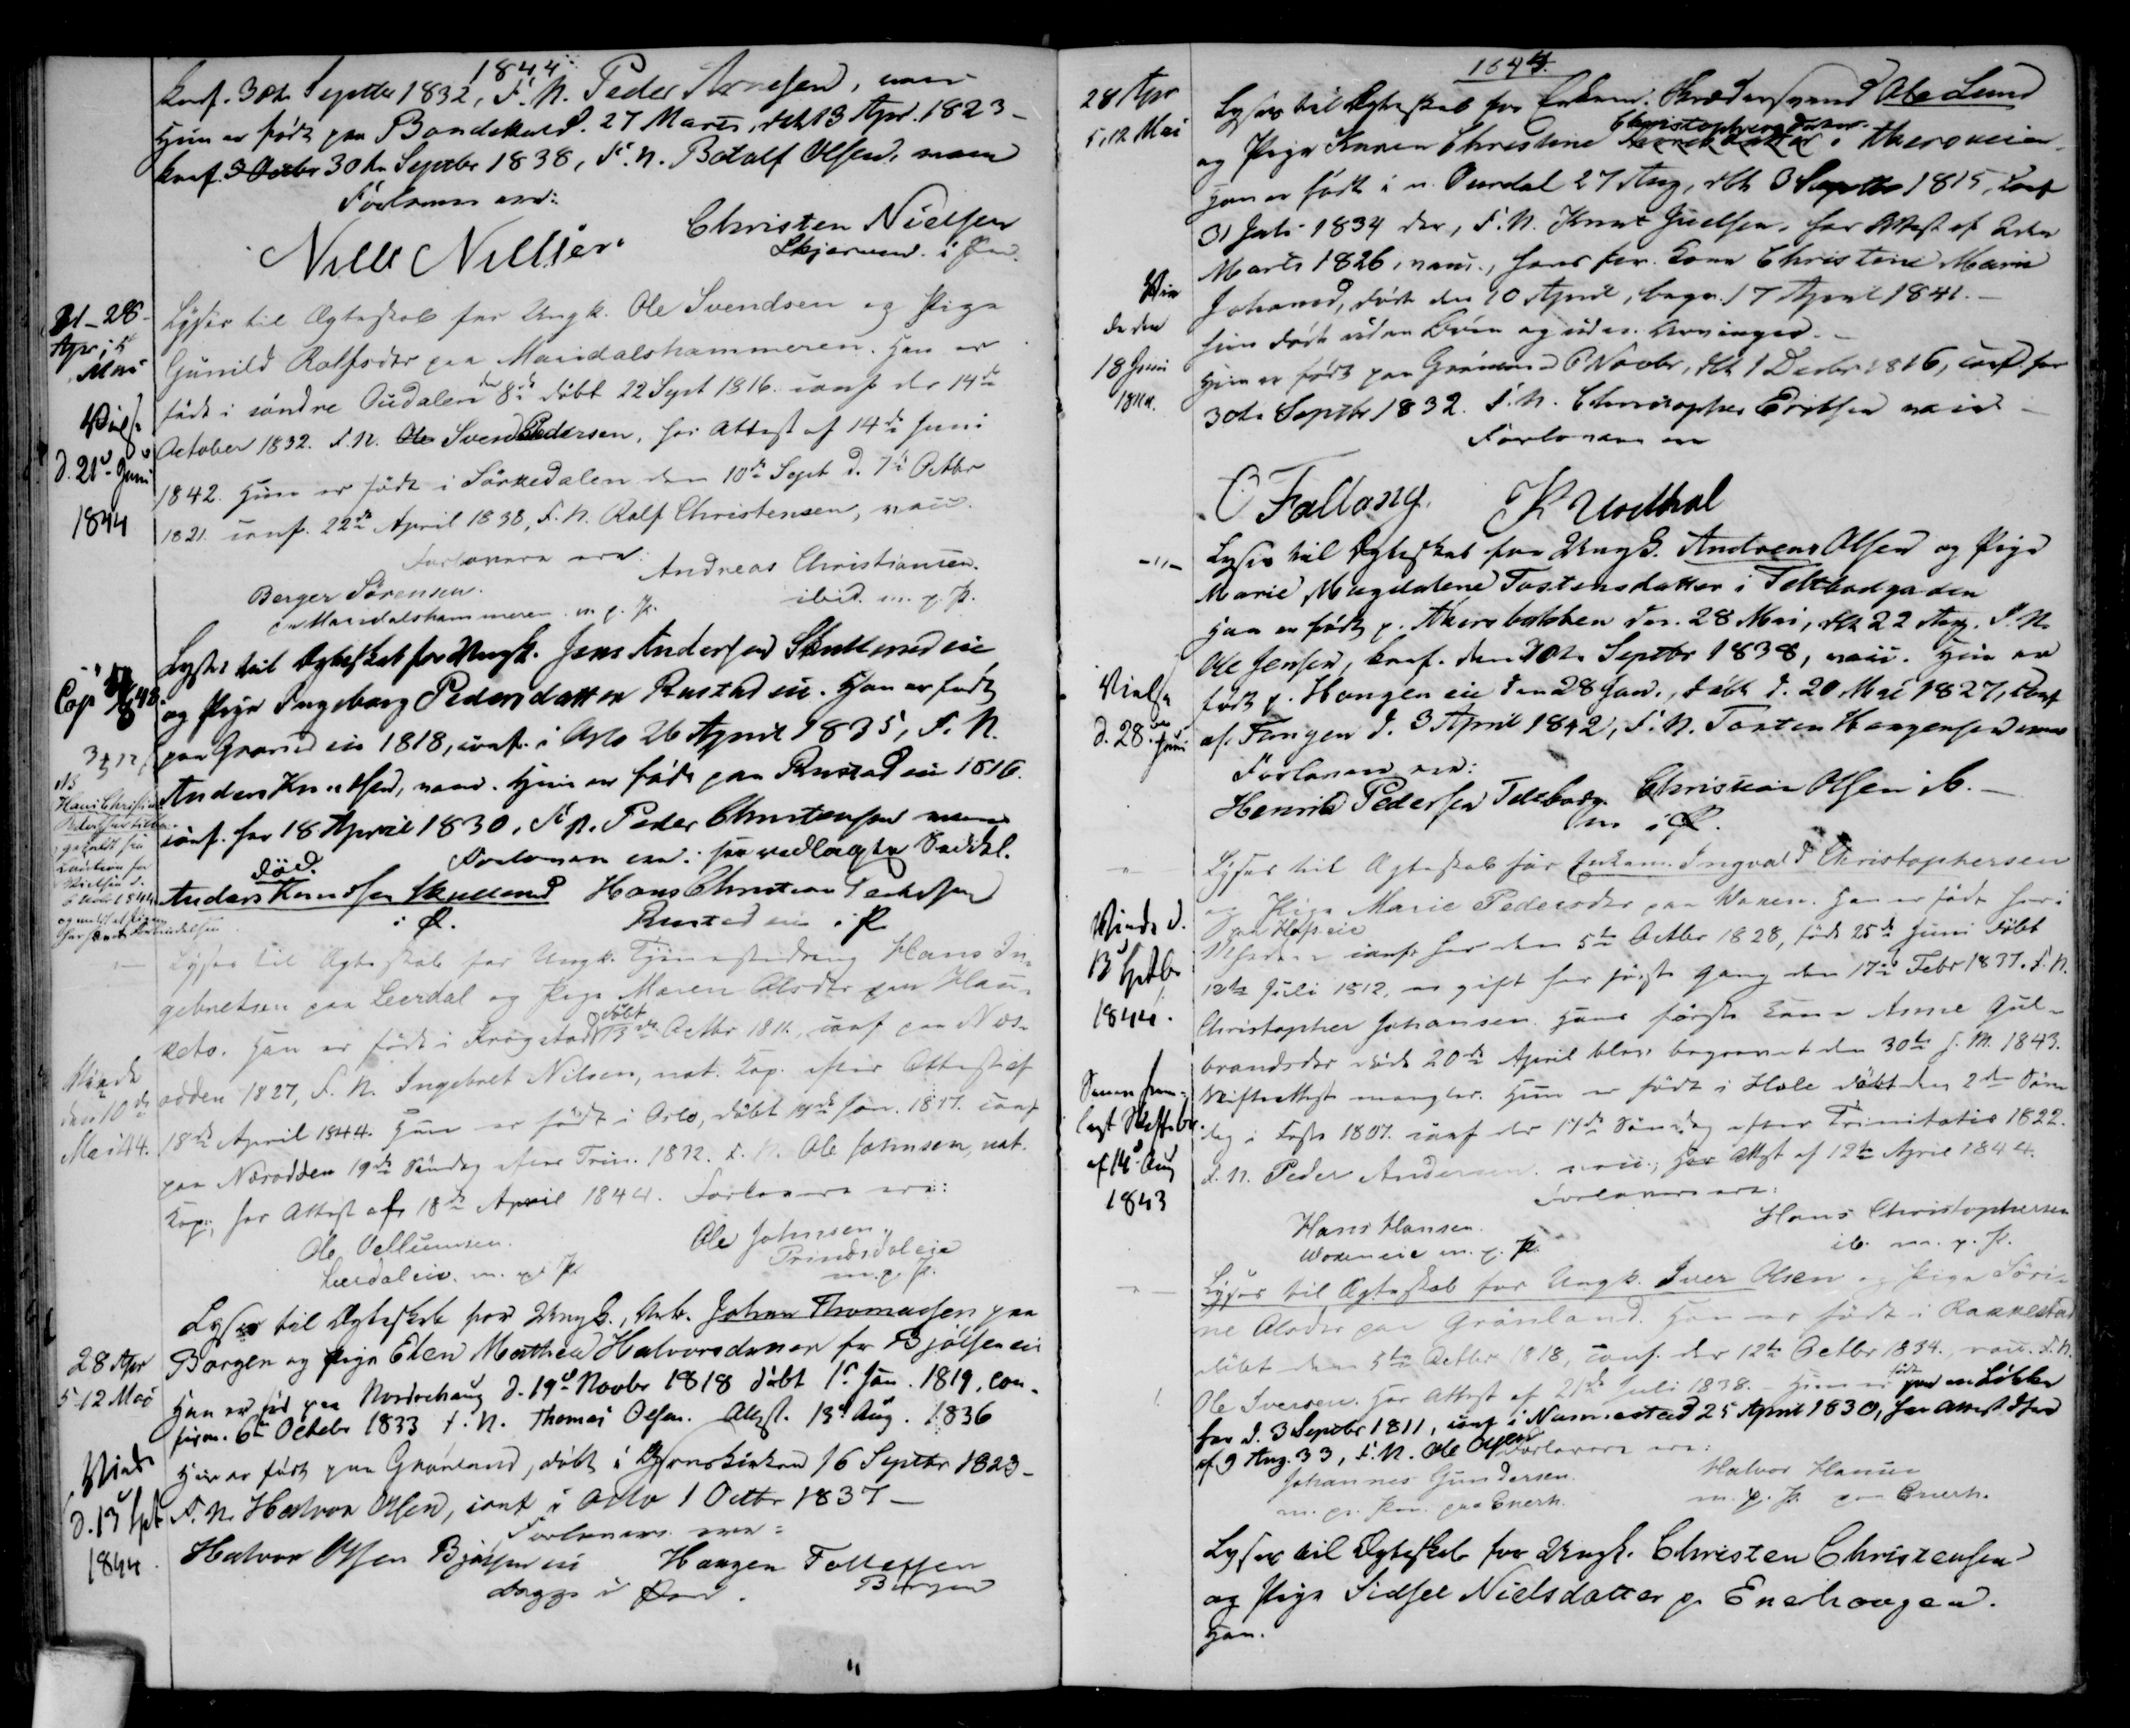 1844
Conf. 30te Septbr 1832, F. N. Peder Arnesen, vacc
Hun er født paa Bondekald. 27 Marts, dbt 13 Apr. 1823 -
Conf. 30te Septbr 1838, F. N. Botolf Olsen, vacc
Forlovere ere:
Christen Nielsen
Skjerven i P.
21-28
Apr; 5
Mai
Lyses til Ægteskab for Ungk. Ole Svendsen og Pige
Gunild Rolfsdtr paa Maridalshammeren. Han er
født i søndre Oudalen den 8de døbt 22 Sept 1816. conf. der 14de
October 1832. F. N. Ole Svend Pedersen, har Attest af 14de Juni
1842. Hun er født i Sørkedalen den 10de Sept d. 7de Octbr
1821. conf. 22de April 1838, F. N. Rolf Christensen, vacc.
Viet
d. 21de Juni
1844
Forlovere ere:
Berger Sørensen.
Maridalshammeren m. p. P.
Andreas Christiansen.
ibid. m. p. P.
Lyses til Ægteskab for Ungk. Jens Andersen Skullerud eie
og Pige Ingeborg Pedersdatter Rustad eie. Han er født
paa Grorud eie 1818, conf. i Oslo 26 April 1835, F. N.
Anders Knudsen, vacc. Hun er født paa Rustad eie 1816.
conf. her 18 April 1830, F. N. Peder Christensen vacc
Forlovere ere: see vedlagte Seddel.
død.
Anders Knudsen Skullerud
i P.
Hans Christian Pedersen
Rustad eie i P.
NB
Hans Christian
Pedersen
Lyses til Ægteskab for Ungk. Tjenestedreng Hans In-
gebretsen paa Leerdal og Pige Maren Olsdtr paa Hau-
keto. Han er født i Krogstad døbt 13de Octbr 1811, conf paa Næs-
odden 1827, F. N. Ingebret Nilsen, nat. Kop. efter Attest af
18de April 1844. Hun er født i Oslo, døbt 14de Jan. 1817. conf
paa Næsodden 19de Søndag efter Trin. 1832. F. N. Ole Johnsen, nat.
Kop., har Attest af 18de April 1844. Forlovere ere:
Viede
den 10de
Mai 44.
Ole
Leerdaleie. m. p. P.
Ole Johnsen,
Prindsdaleie
m. p. P.
28 Apr
5-12 Mai
Lyses til Ægteskab for Ungk., Arb. Johan Thomasen paa
Borgen og Pige Elen Mathea Halvorsdatter fra Bjølsen eie
Han er fød paa Nordrehaug d. 19de Novbr 1818 døbt 1ste Jan. 1819, con-
firm. 6te Octobr 1833 F. N. Thomas Olsen. Attest. 13de Aug. 1836
Hun er født paa Grønland, døbt i Opsloekirken 16 Septbr 1823 -
F. N. Halvor Olsen, conf i Oslo 1 Octbr 1837 -
Viede
d. 13 Spt
1844.
Forlovere ere:
Halvor Olsen Bjølsen eie
begge i Pen.
Haagen Tollefsen
Borgen
1844.
28 Apr
5, 12 Mai
Lyses til Ægteskab for Enkem. Skrædersvend Ole Lund
og Pige Karen Christine Christophersdatter i Akersveien.
Han er født i n. Ourdal 27 Aug, dbt 3 Septbr 1815, Conf
31 Juli 1834 der, F. N. Knut Juelsen, har Attest af 2den
Marts 1826, vacc., hans før. Kone Christine Marie
Johansd, døde den 10 April, begr. 17 April 1841. -
Hun er født paa Grønland 6 Novbr, dbt 1 Decbr 1816, conf. her
30te Septbr 1832. F. N. Christopher Eriksen vacc -
18 Juni
1844.
Forlovere ere
O Fallang.
-"-
Lyses til Ægteskab for Ungk. Andreas Olsen og Pige
Marie Magdalene Tostensdatter i Teltbodgaden
Han er født p. Akersbakken den 28 Mai, dbt 22 Aug. F. N.
Ole Jensen, Conf. den 30te Septbr 1838, vacc. Hun er
født p. Haugen eie den 28 Jan., døbt d. 20 Mai 1827, Conf
af Tangen d. 3 April 1842, F. N. Tosten Haagensen vacc
Viet
d. 28de Juni
Forlovere ere:
Henrik Pedersen Teltbodg.
Christian Olsen ib. -
m i P.
-"-
Lyses til Ægteskab for Enkem. Ingvald Christophersen
og Pige Marie Pedersdtr paa Woxen. Han er født her i
paa Hofseie
conf. her den 5te Octbr 1828, født 25de Juni døbt
12te Juli 1812, er gift her første Gang den 17de Febr 1837. F. N.
Christopher Johansen. Hans første Kone Anne Gul-
brandsdtr døde 20de April blev begravet den 30te s. M. 1843.
Skifteattest mangler. Hun er født i Hole døbt den 2den Søn-
dag i Faste 1807. conf der 17de Søndag efter Trinitatis 1822.
F. N. Peder Andersen. vacc., har Attest af 12te April 1844.
Viede d.
13de Septbr
1844.
Senere frem-
lagt Skiftebr
af 14de Aug
1843
Forlovere ere:
Hans Hansen.
Woxeneie m. p. P.
Hans Christophersen
ib. m. p. P.
-"-
Lyses til Ægteskab for Ungk. Iver Olsen og Pige Søri-
ne Olsdtr paa Grønland. Han er født i Rakkestad
døbt den 5te Octbr 1818, conf. der 12te Octbr 1834., vacc. F. N.
Ole Iversen. Har Attest af 21de Juli 1838. - Hun er født paa en Løkke
her d. 3 Septbr 1811, conf i Nannestad 25 April 1830, har Attest dfra
af 9 Aug. 33, F. N. Ole Olsen
Forlovere ere:
Johannes Gundersen.
m. p. Pen. paa Enerh.
Halvor Hansen
m. p. P. paa Enerh.
Lyses til Ægteskab for Ungk. Christen Christensen
og Pige Sidsel Nielsdatter p. Enerhaugen.
Han.